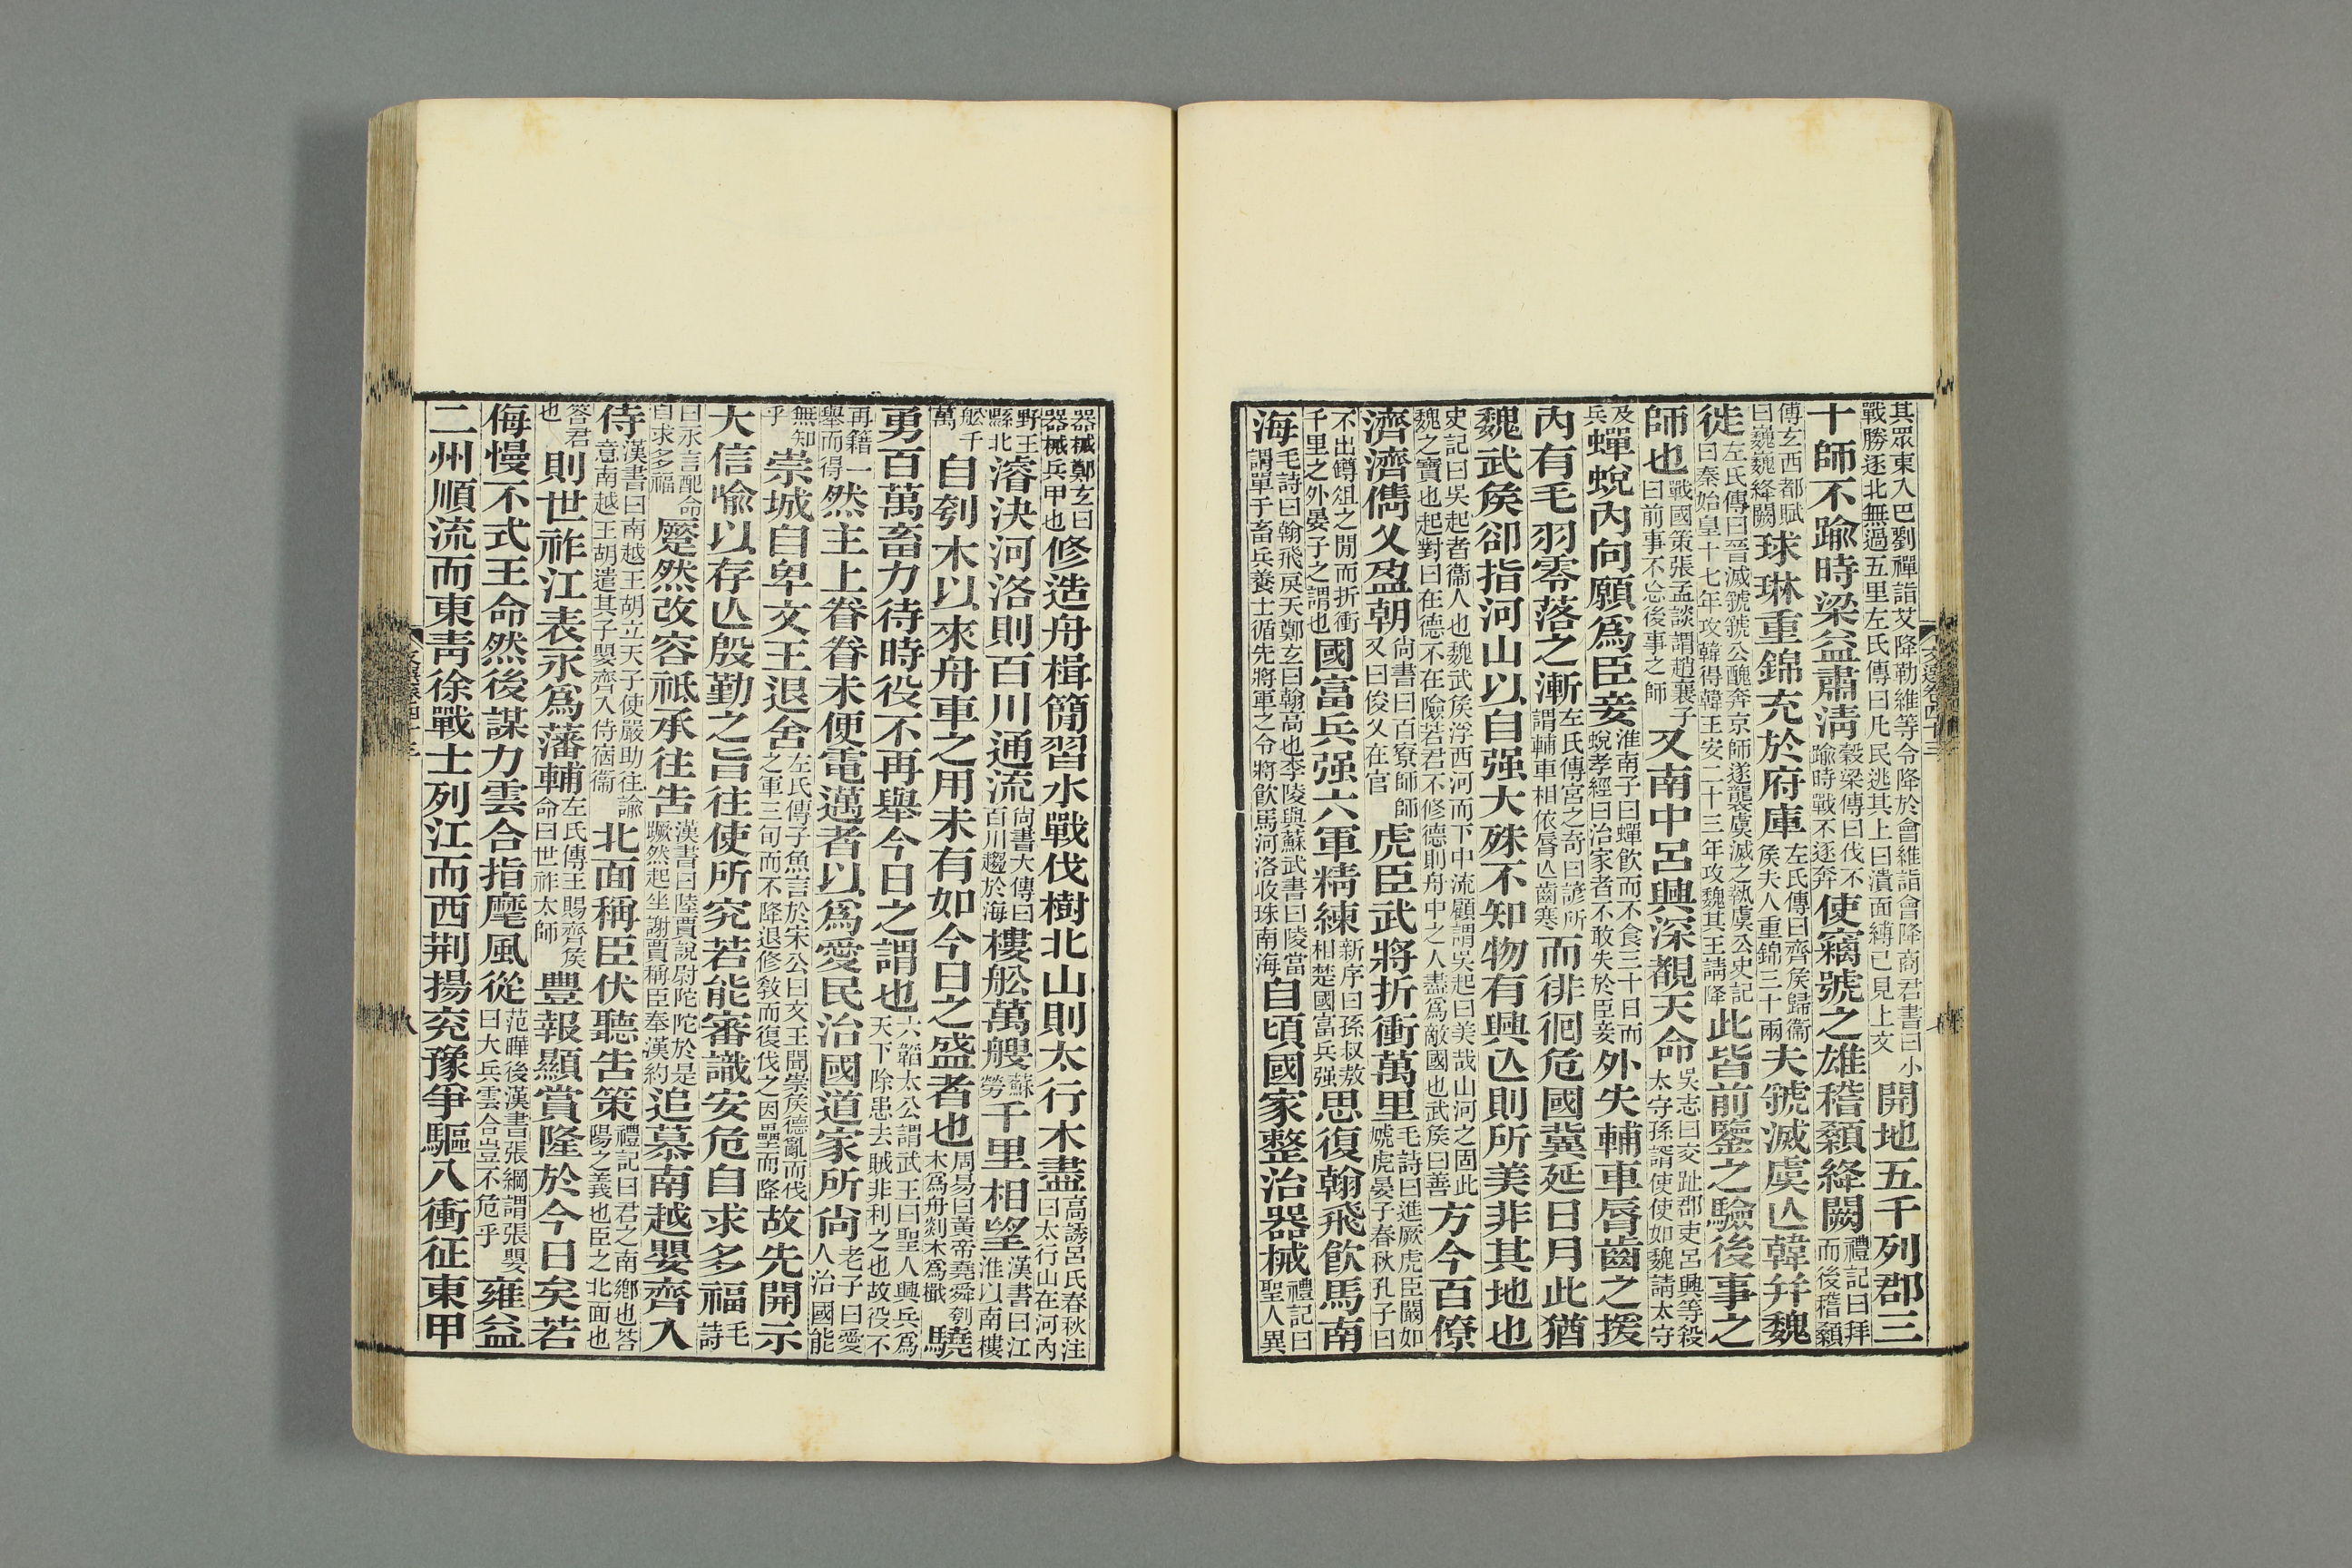 其眾東入巴劉禪詣艾降勒維等令降於會維詣會降商君書曰小
戰勝逐北無過五里左氏傳曰凡民逃其上曰潰面縛已見上文
開地五千列郡三
十師不踰時梁益肅清
穀梁傳曰伐不
踰時戰不逐奔
使竊號之雄稽顙絳闕
禮記曰拜
而後稽顙
傅玄西都賦
曰巍巍絳闕
球琳重錦充於府庫
左氏傳曰齊侯歸衞
侯夫人重錦三十兩
夫虢滅虞亾韓并魏
徙
左氏傳曰晉滅虢虢公醜奔京師遂襲虞滅之執虞公史記
曰秦始皇十七年攻韓得韓王安二十三年攻魏其王請降
此皆前鑒之驗後事之
師也
戰國策張孟談謂趙襄子
曰前事不忘後事之師
又南中呂興深覩天命
吳志曰交趾郡吏呂興等殺
太守孫諝使使如魏請太守
及
兵
蟬蛻內向願爲臣妾
淮南子曰蟬飮而不食三十日而
蛻孝經曰治家者不敢失於臣妾
外失輔車脣齒之援
內有毛羽零落之漸
左氏傳宮之奇曰諺所
謂輔車相依脣亾齒寒
而徘徊危國冀延日月此猶
魏武矦卻指河山以自强大殊不知物有興亾則所美非其地也
史記曰吳起者衞人也魏武矦浮西河而下中流顧謂吳起曰美哉山河之固此
魏之寶也起對曰在德不在險若君不修德則舟中之人盡爲敵國也武矦曰善
方今百僚
濟濟儁乂盈朝
尙書曰百寮師師
又曰俊乂在官
虎臣武將折衝萬里
毛詩曰進厥虎臣闞如
虓虎晏子春秋孔子曰
不出罇俎之閒而折衝
千里之外晏子之謂也
國富兵强六軍精練
新序曰孫叔敖
相楚國富兵强
思復翰飛飮馬南
海
毛詩曰翰飛戾天鄭玄曰翰高也李陵與蘇武書曰陵當
謂單于畜兵養士循先將軍之令將飮馬河洛收珠南海
自頃國家整治器械
禮記曰
聖人異
文選卷四十三
七
器械鄭玄曰
器械兵甲也
修造舟楫簡習水戰伐樹北山則太行木盡
高誘呂氏春秋注
曰太行山在河內
野王
縣北
濬決河洛則百川通流
尙書大傳曰
百川趨於海
樓舩萬艘
蘇
勞
千里相望
漢書曰江
淮以南樓
舩千
萬
自刳木以來舟車之用未有如今日之盛者也
周易曰黃帝堯舜刳
木爲舟剡木爲檝
驍
勇百萬畜力待時役不再舉今日之謂也
六韜太公謂武王曰聖人興兵爲
天下除患去賊非利之也故役不
再籍一
舉而得
然主上眷眷未便電邁者以爲愛民治國道家所尙
老子曰愛
人治國能
無知
乎
崇城自卑文王退舍
左氏傳子魚言於宋公曰文王聞崇矦德亂而伐
之軍三旬而不降退修敎而復伐之因壘而降
故先開示
大信喻以存亾殷勤之旨往使所究若能審識安危自求多福
毛
詩
曰永言配命
自求多福
蹷然改容祗承往吿
漢書曰陸賈說尉陀陀於是
蹶然起坐謝賈稱臣奉漢約
追慕南越嬰齊入
侍
漢書曰南越王胡立天子使嚴助往諭
意南越王胡遣其子嬰齊入侍宿衞
北面稱臣伏聽吿策
禮記曰君之南鄕也荅
陽之義也臣之北面也
答君
也
則世祚江表永爲藩輔
左氏傳王賜齊矦
命曰世祚太師
豐報顯賞隆於今日矣若
侮慢不式王命然後謀力雲合指麾風從
范曄後漢書張綱謂張嬰
曰大兵雲合豈不危乎
雍益
二州順流而東靑徐戰士列江而西荆揚兖豫爭驅八衝征東甲
八